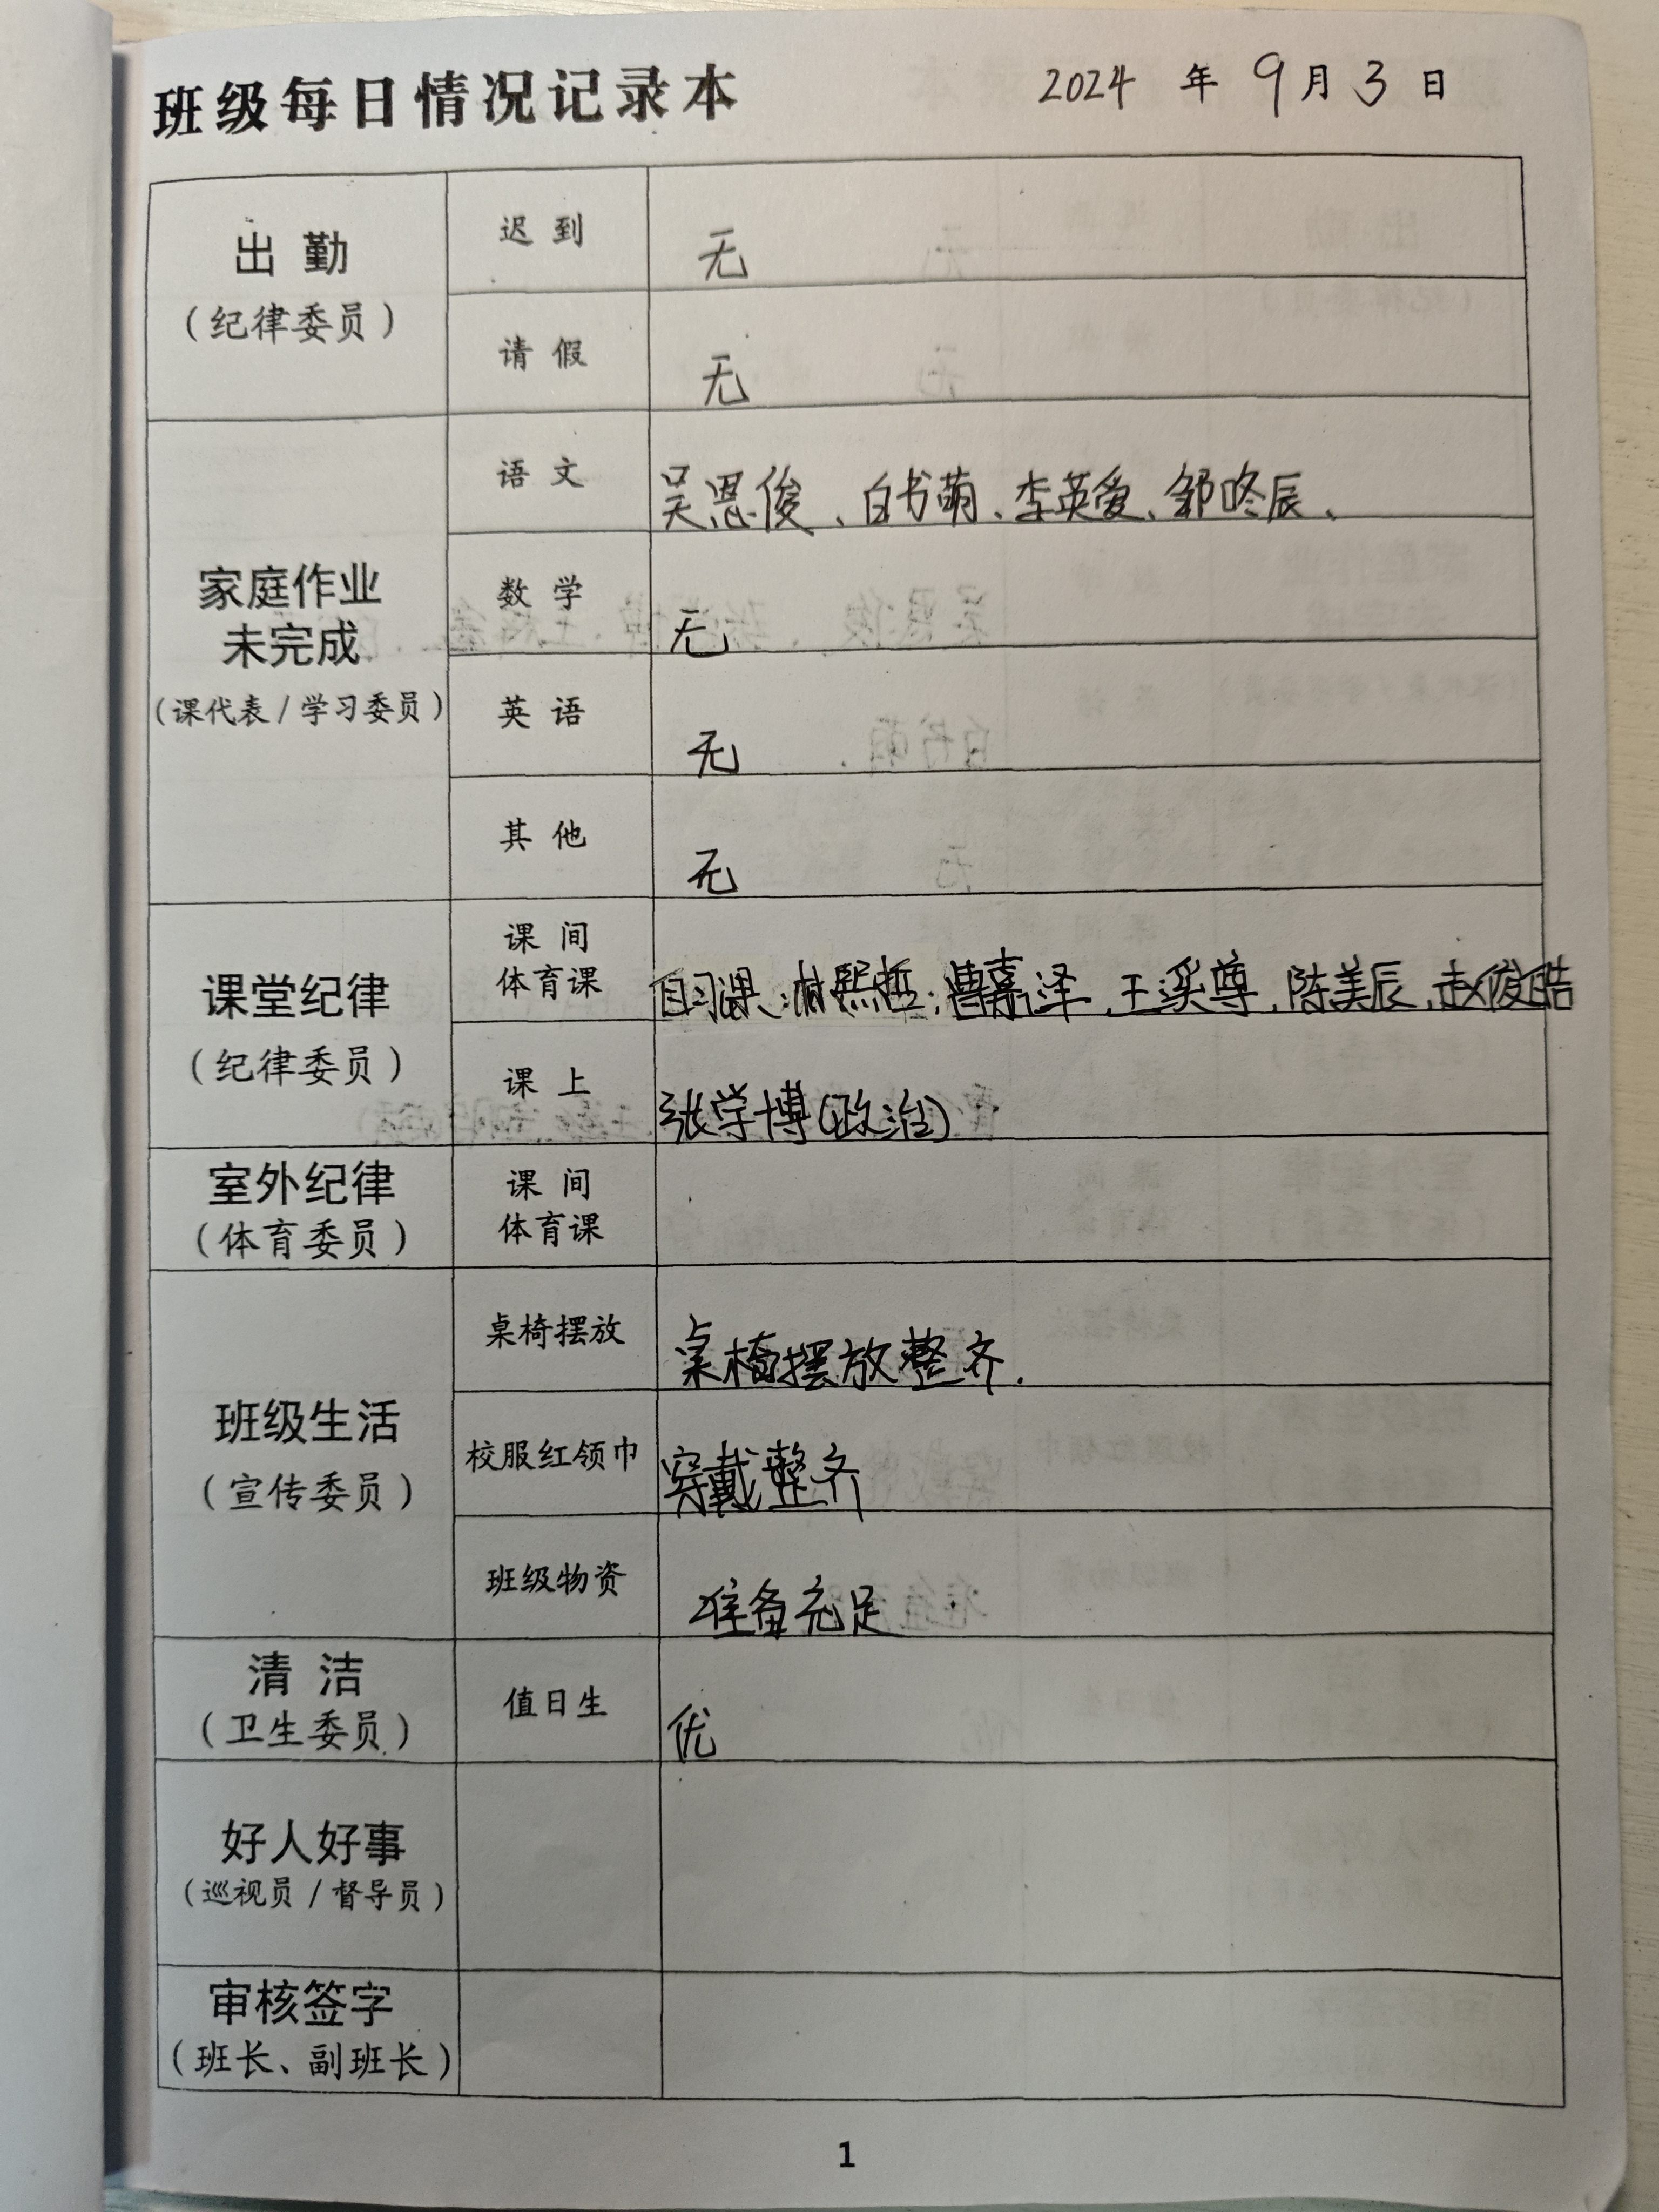 班级每日情况记录本 2024 年 9 月 3 日
出 勤
(纪律委员)
迟 到 无
请 假 无
家庭作业
未完成
(课代表/学习委员)
语 文 吴恩俊、白书萌、李英爱、邹咚辰、
数 学 无
英 语 无
其 他 无
课堂纪律
(纪律委员)
课 间
体育课 自习课:林熙哲;曹嘉泽、王溪尊、陈美辰、赵俊皓
课 上 张学博(政治)
室外纪律
(体育委员)
课 间
体育课
班级生活
(宣传委员)
桌椅摆放 桌椅摆放整齐.
校服红领巾 穿戴整齐
班级物资 准备充足
清 洁
(卫生委员)
值日生 优
好人好事
(巡视员/督导员)
审核签字
(班长、副班长)
1